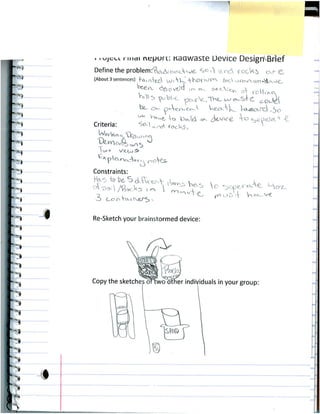 Project Final Report: Radwaste Device Design Brief
Define the problem: Radioactive soil and rocks are
(About 3 sentences) tainted with thorium and
been in a section of rolling
hills public park. The waste could
be a health hazard. So
we have to build a device to
Criteria: soil and rocks.
Working Drawing
Demonsions
Two views
Explanatory notes
Constraints:
Has to be 5 different items has to seperate 40z
of soil/Rocks in 1 minute must have
3 containers.
Re-Sketch your brainstormed device:
Rocks
Copy the sketches of two other individuals in your group:
SAND